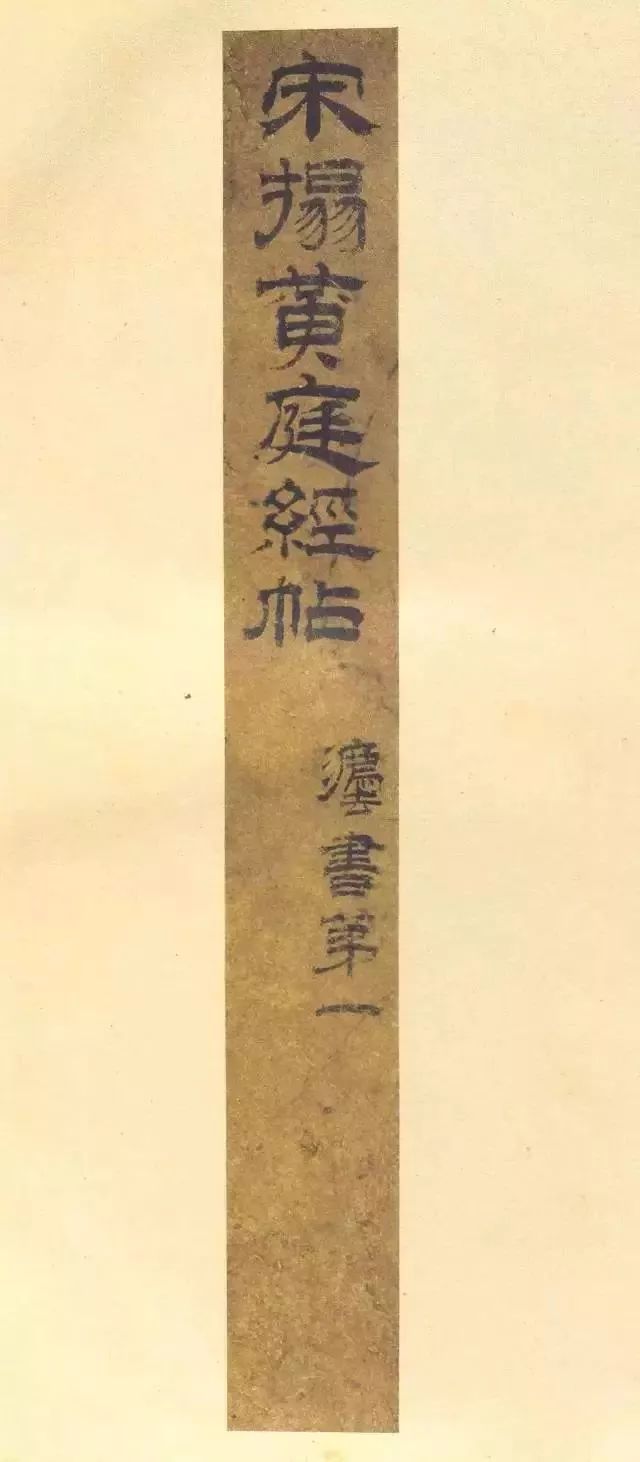 宋搨黄庭經帖
灋書第一